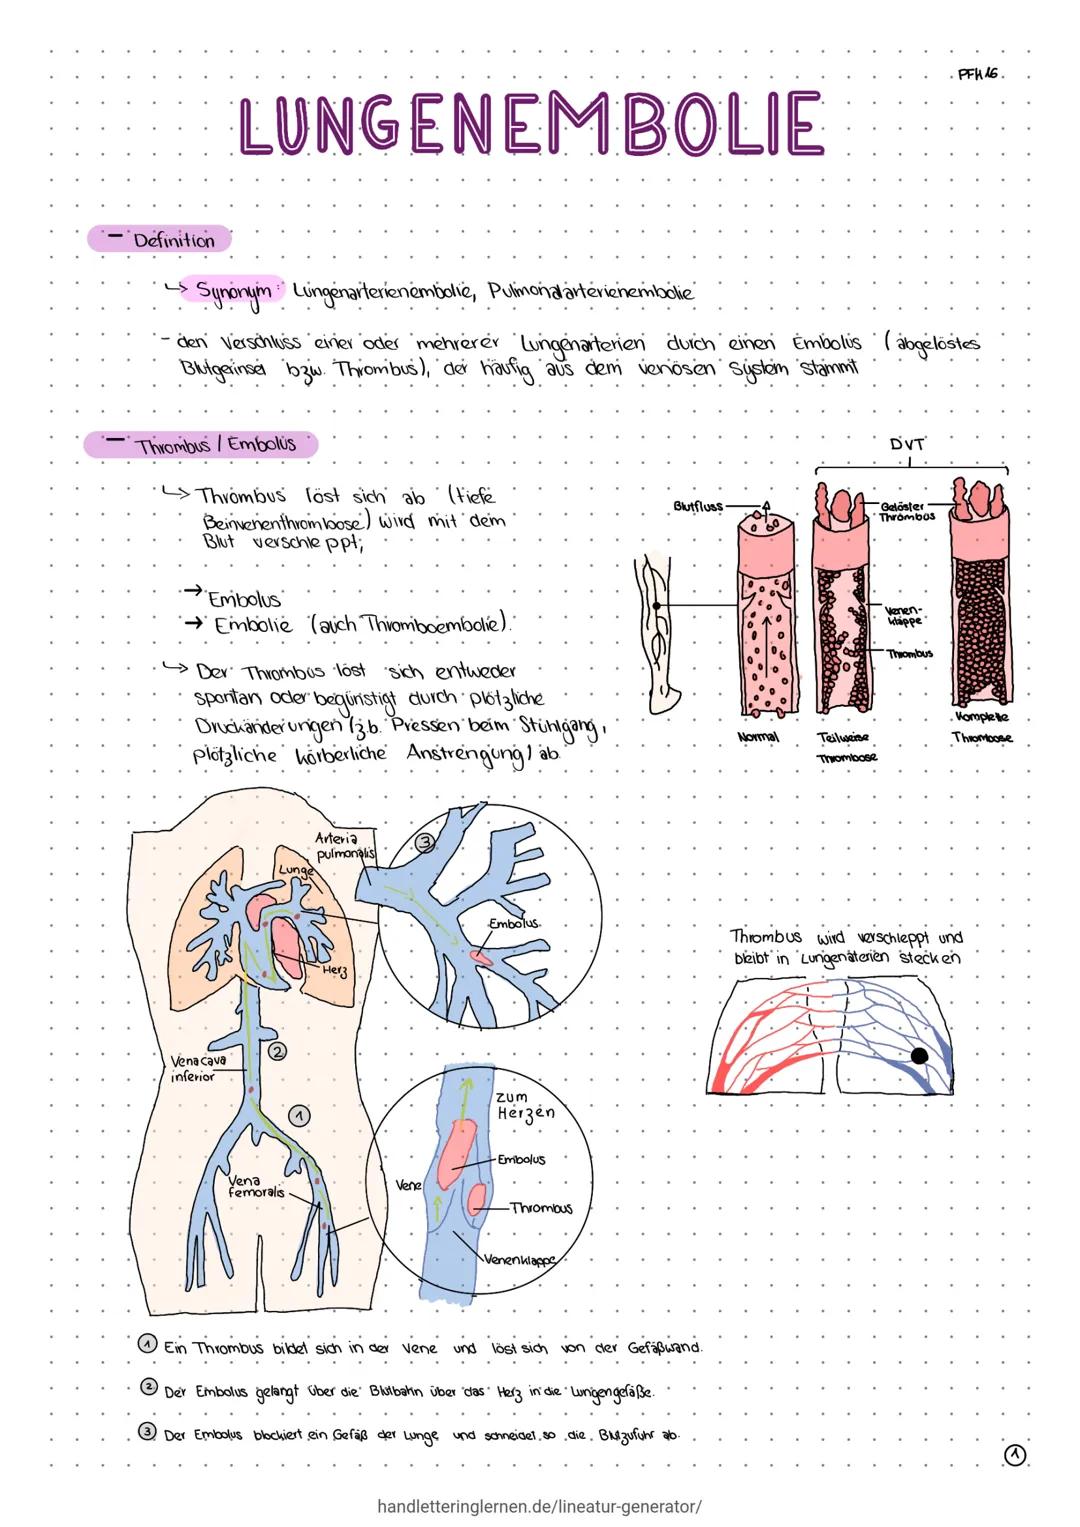 PFH 16
LUNGENEMBOLIE
– Definition
↳ Synonym: Lungenarterienembolie, Pulmonalarterienembolie
- den Verschluss einer oder mehrerer Lungenarterien durch einen Embolus (abgelöstes
Blutgerinsel bzw. Thrombus), der häufig aus dem venösen System stammt
– Thrombus / Embolus
↳ Thrombus löst sich ab (tiefe
Beinvenenthrombose) wird mit dem
Blut verschleppt;
→ Embolus
→ Embolie (auch Thromboembolie).
↳ Der Thrombus löst sich entweder
spontan oder begünstigt durch plötzliche
Druckänderungen (z.b. Pressen beim Stuhlgang,
plötzliche körberliche Anstrengung) ab.
DVT
Blutfluss
Gelöster
Thrombus
Venen-
klappe
Thrombus
Normal
Teilweise
Thrombose
Komplette
Thrombose
Arteria
pulmonalis
Lunge
Herz
3
Embolus
Vena cava
inferior
2
1
Vena
femoralis
zum
Herzen
Embolus
Vene
Thrombus
Venenklappe
Thrombus wird verschleppt und
bleibt in Lungenäterien stecken
1 Ein Thrombus bildet sich in der Vene und löst sich von der Gefäßwand.
2 Der Embolus gelangt über die Blutbahn über das Herz in die Lungengefäße.
3 Der Embolus blockiert ein Gefäß der Lunge und schneidet so die Blutzufuhr ab.
1
handletteringlernen.de/lineatur-generator/